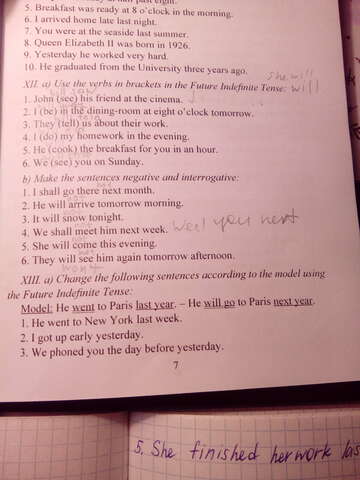 5. Breakfast was ready at 8 o'clock in the morning.
6. I arrived home late last night.
7. You were at the seaside last summer.
8. Queen Elizabeth II was born in 1926.
9. Yesterday he worked very hard.
10. He graduated from the University three years ago.
she will
XII. a) Use the verbs in brackets in the Future Indefinite Tense: will
1. John (see) his friend at the cinema.
2. I (be) in the dining-room at eight o'clock tomorrow.
3. They (tell) us about their work.
4. I (do) my homework in the evening.
5. He (cook) the breakfast for you in an hour.
6. We (see) you on Sunday.
b) Make the sentences negative and interrogative:
1. I shall go there next month.
2. He will arrive tomorrow morning.
3. It will snow tonight.
4. We shall meet him next week.
5. She will come this evening.
6. They will see him again tomorrow afternoon.
XIII. a) Change the following sentences according to the model using
the Future Indefinite Tense:
Model: He went to Paris last year. – He will go to Paris next year.
1. He went to New York last week.
2. I got up early yesterday.
3. We phoned you the day before yesterday.
7
5. She finished her work las